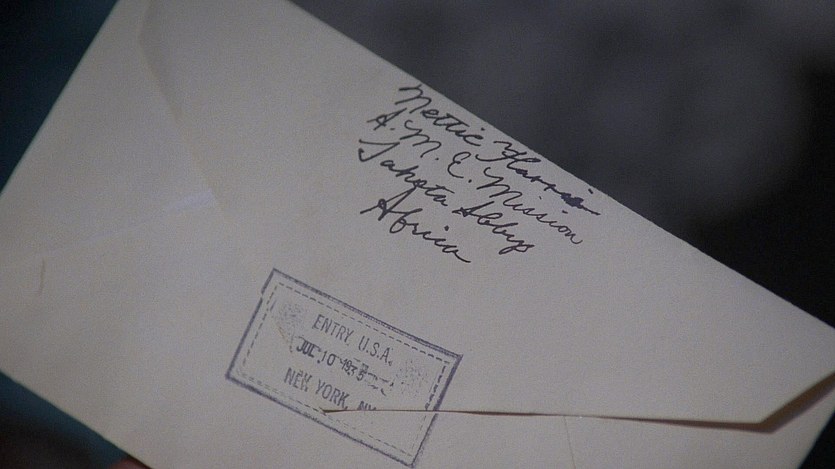 Nettie Harris
A. M. E. Mission
Tahota Abbys
Africa
ENTRY U.S.A.
JUL 10 1935
NEW YORK, NY